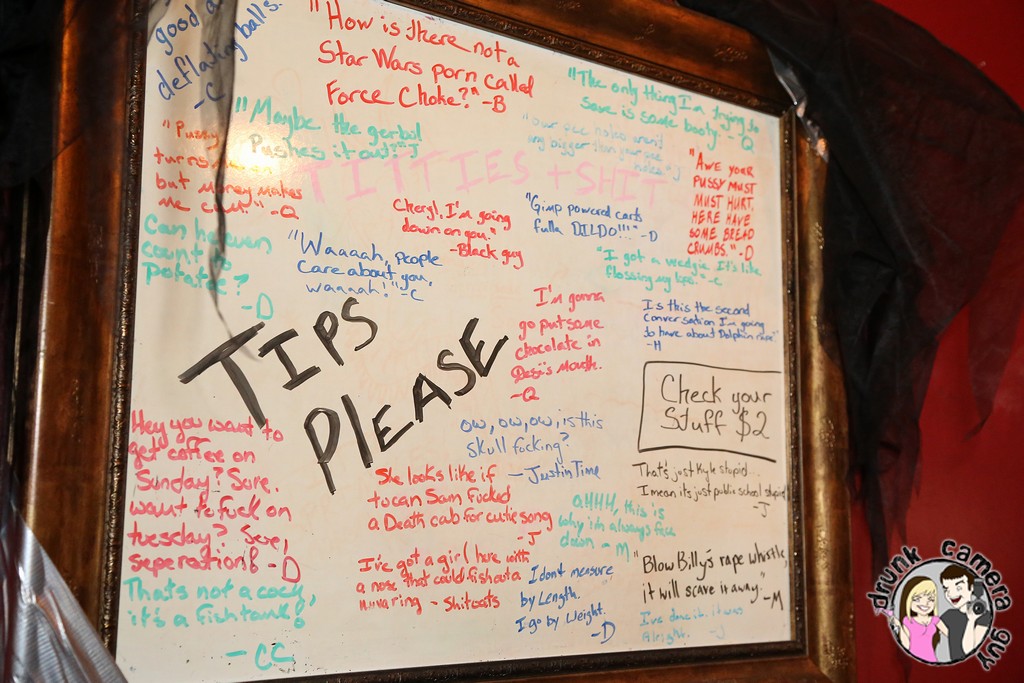 good a
deflating balls.
-C
"How is there not a
Star Wars porn called
Force Choke?" -B
"The only thing I'm trying to
save is some booty." -Q
"Maybe the gerbil
Pushes it out?" -J
"our pee holes aren't
any bigger than your pee
holes" -J
"Pussy
turns
but money makes
me cum." -Q
TITTIES + SHIT
"AWE YOUR
PUSSY MUST
MUST HURT,
HERE HAVE
SOME BREAD
CRUMBS." -D
Cheryl, I'm going
down on you."
-Black guy
"Gimp powered carts
fulla DILDO!!!" -D
Can he even
count to
potatoe?
-D
"Waaaah, people
care about you,
waaaah!" -C
"I got a wedgie. It's like
flossing my" -C
I'm gonna
go put some
chocolate in
Desi's mouth.
-Q
Is this the second
conversation I'm going
to have about Dolphin rape"
-H
TIPS
PLEASE
Check your
Stuff $2
Hey you want to
get coffee on
Sunday? Sure.
want to fuck on
tuesday? Sure,
seperation! -D
ow, ow, ow, is this
skull fucking?
-Justin Time
She looks like if
tucan Sam Fucked
a Death cab for cutie song
-J
That's just Kyle stupid...
I mean its just public school stupid
-J
AHHH, this is
why i'm always face
down -M
I've got a girl here with
a nose that could fish out a
-Shitcasts
I dont measure
by Length.
I go by Weight.
-D
"Blow Billy's rape whistle,
it will scare it away."
-M
I've done it. it was
Alright. -J
Thats not a cock,
it's a fishtank!
-CC
drunk camera guy